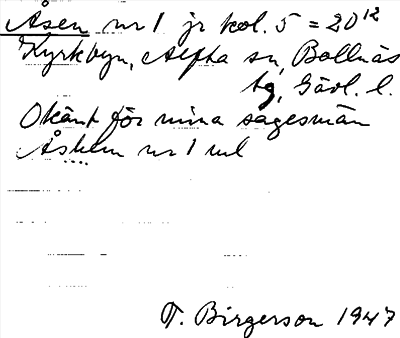 Åsen nr 1 jr kol. 5 = 20¹²
Kyrkbyn, Alfta sn, Bollnäs
tg, Gävl. l.
Okänt för mina sagesmän
nr 1 ml
T. Birgerson 1947